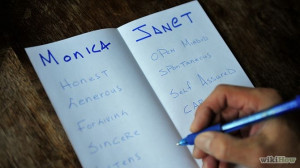 MONICA
HONEST
GENEROUS
FORGIVING
SINCERE
JANET
OPEN MINDED
SPONTANEOUS
SELF ASSURED
wikiHow